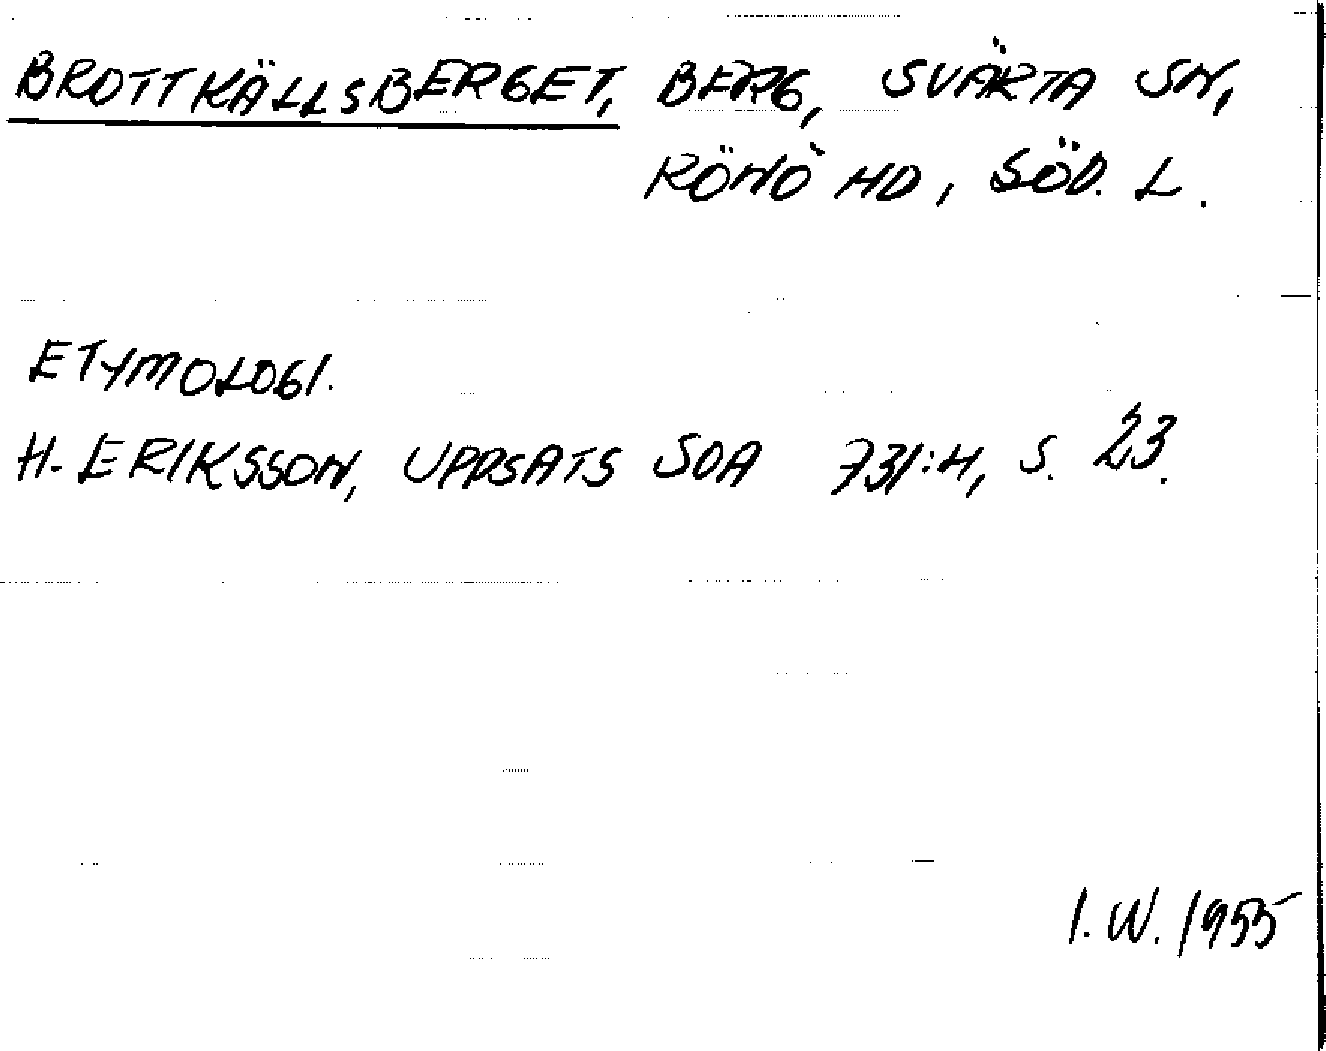 BROTTKÄLLSBERGET, BERG, SVÄRTA SN,
RÖNÖ HD, SÖD. L.
ETYMOLOGI.
H. ERIKSSON, UPPSATS SOA 731:H, S. 23.
I. W. 1955